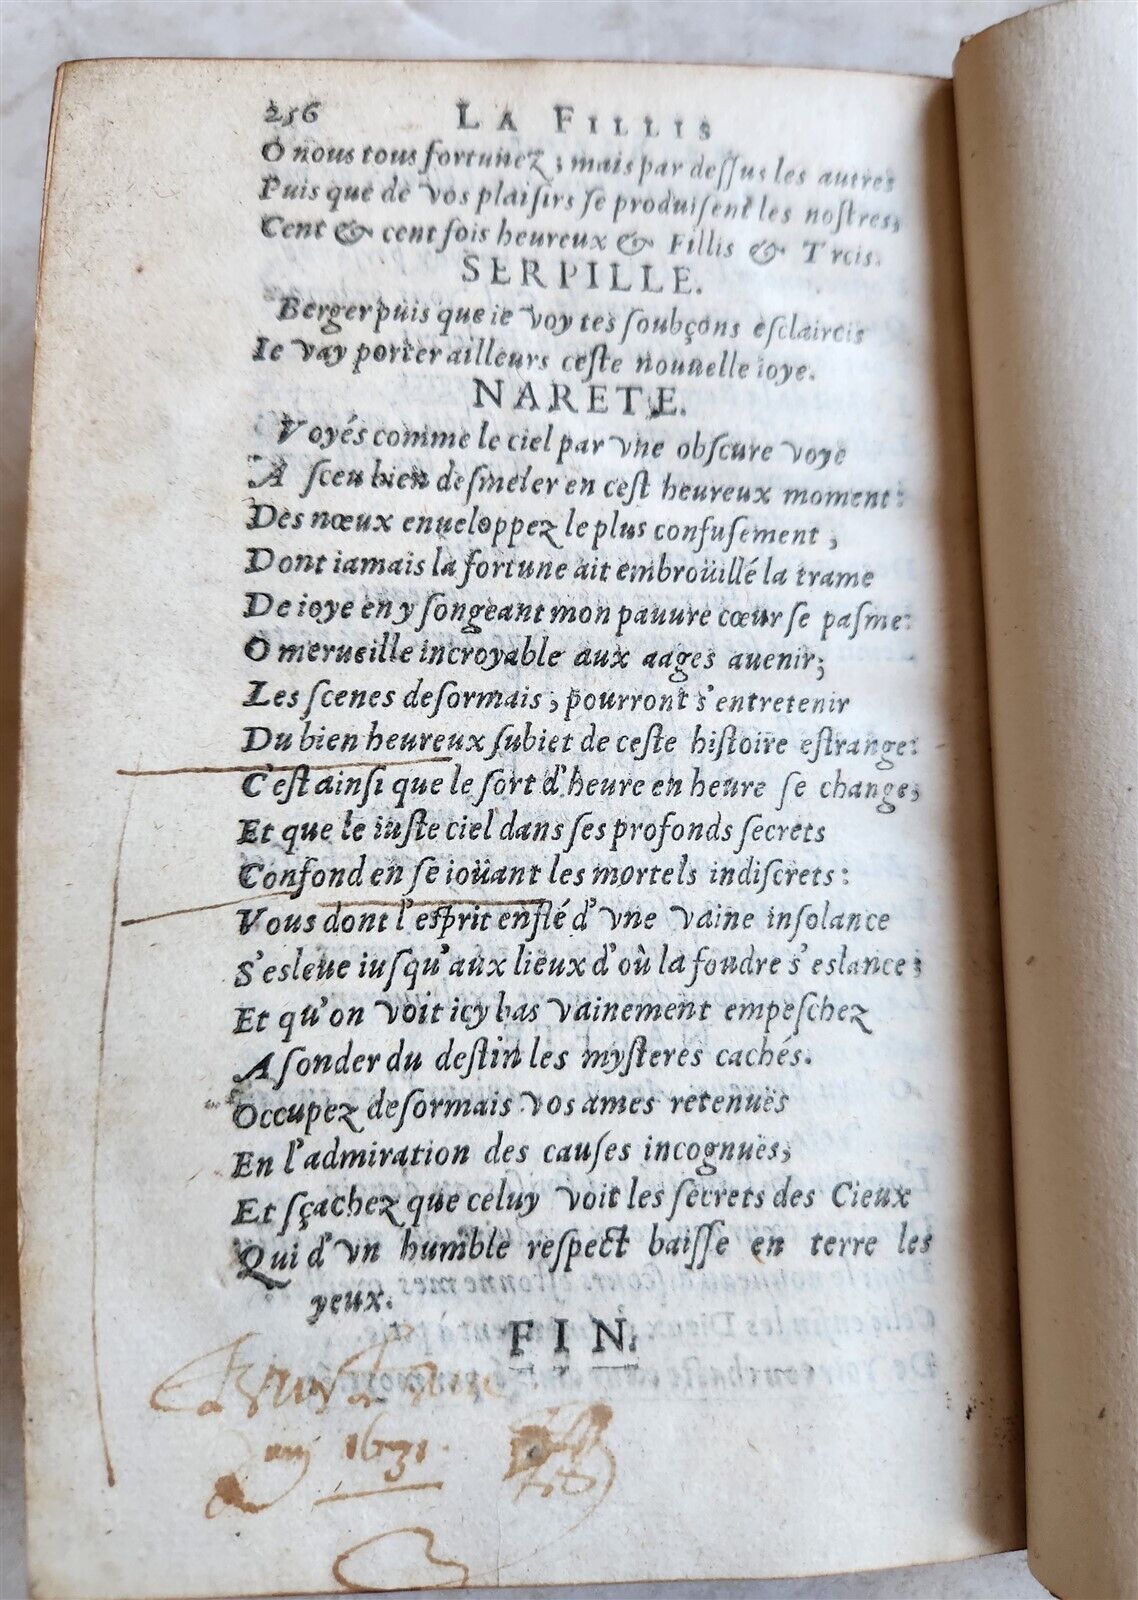 256 LA FILLIS
O nous tous fortunez ; mais par dessus les autres
Puis que de vos plaisirs se produisent les nostres;
Cent & cent fois heureux & Fillis & Trcis.
SERPILLE.
Berger puis que ie voy tes soubçons esclaircis
Ie vay porter ailleurs ceste nouuelle ioye.
NARETE.
Voyés comme le ciel par vne obscure voye
A sceu bien desmeler en cest heureux moment:
Des nœux enueloppez le plus confusement ;
Dont iamais la fortune ait embroüillé la trame
De ioye en y songeant mon pauure cœur se pasme:
O merueille incroyable aux aages auenir;
Les scenes desormais ; pourront s'entretenir
Du bien heureux subiet de ceste histoire estrange:
C'est ainsi que le sort d'heure en heure se change;
Et que le iuste ciel dans ses profonds secrets
Confond en se ioüant les mortels indiscrets:
Vous dont l'esprit enflé d'vne vaine insolance
S'esleue iusqu'aux lieux d'où la foudre s'eslance;
Et qu'on voit icy bas vainement empeschez
A sonder du destin les mysteres cachés.
Occupez desormais vos ames retenuës
En l'admiration des causes incognuës;
Et sçachez que celuy voit les secrets des Cieux
Qui d'vn humble respect baisse en terre les
yeux.
FIN.
1631.